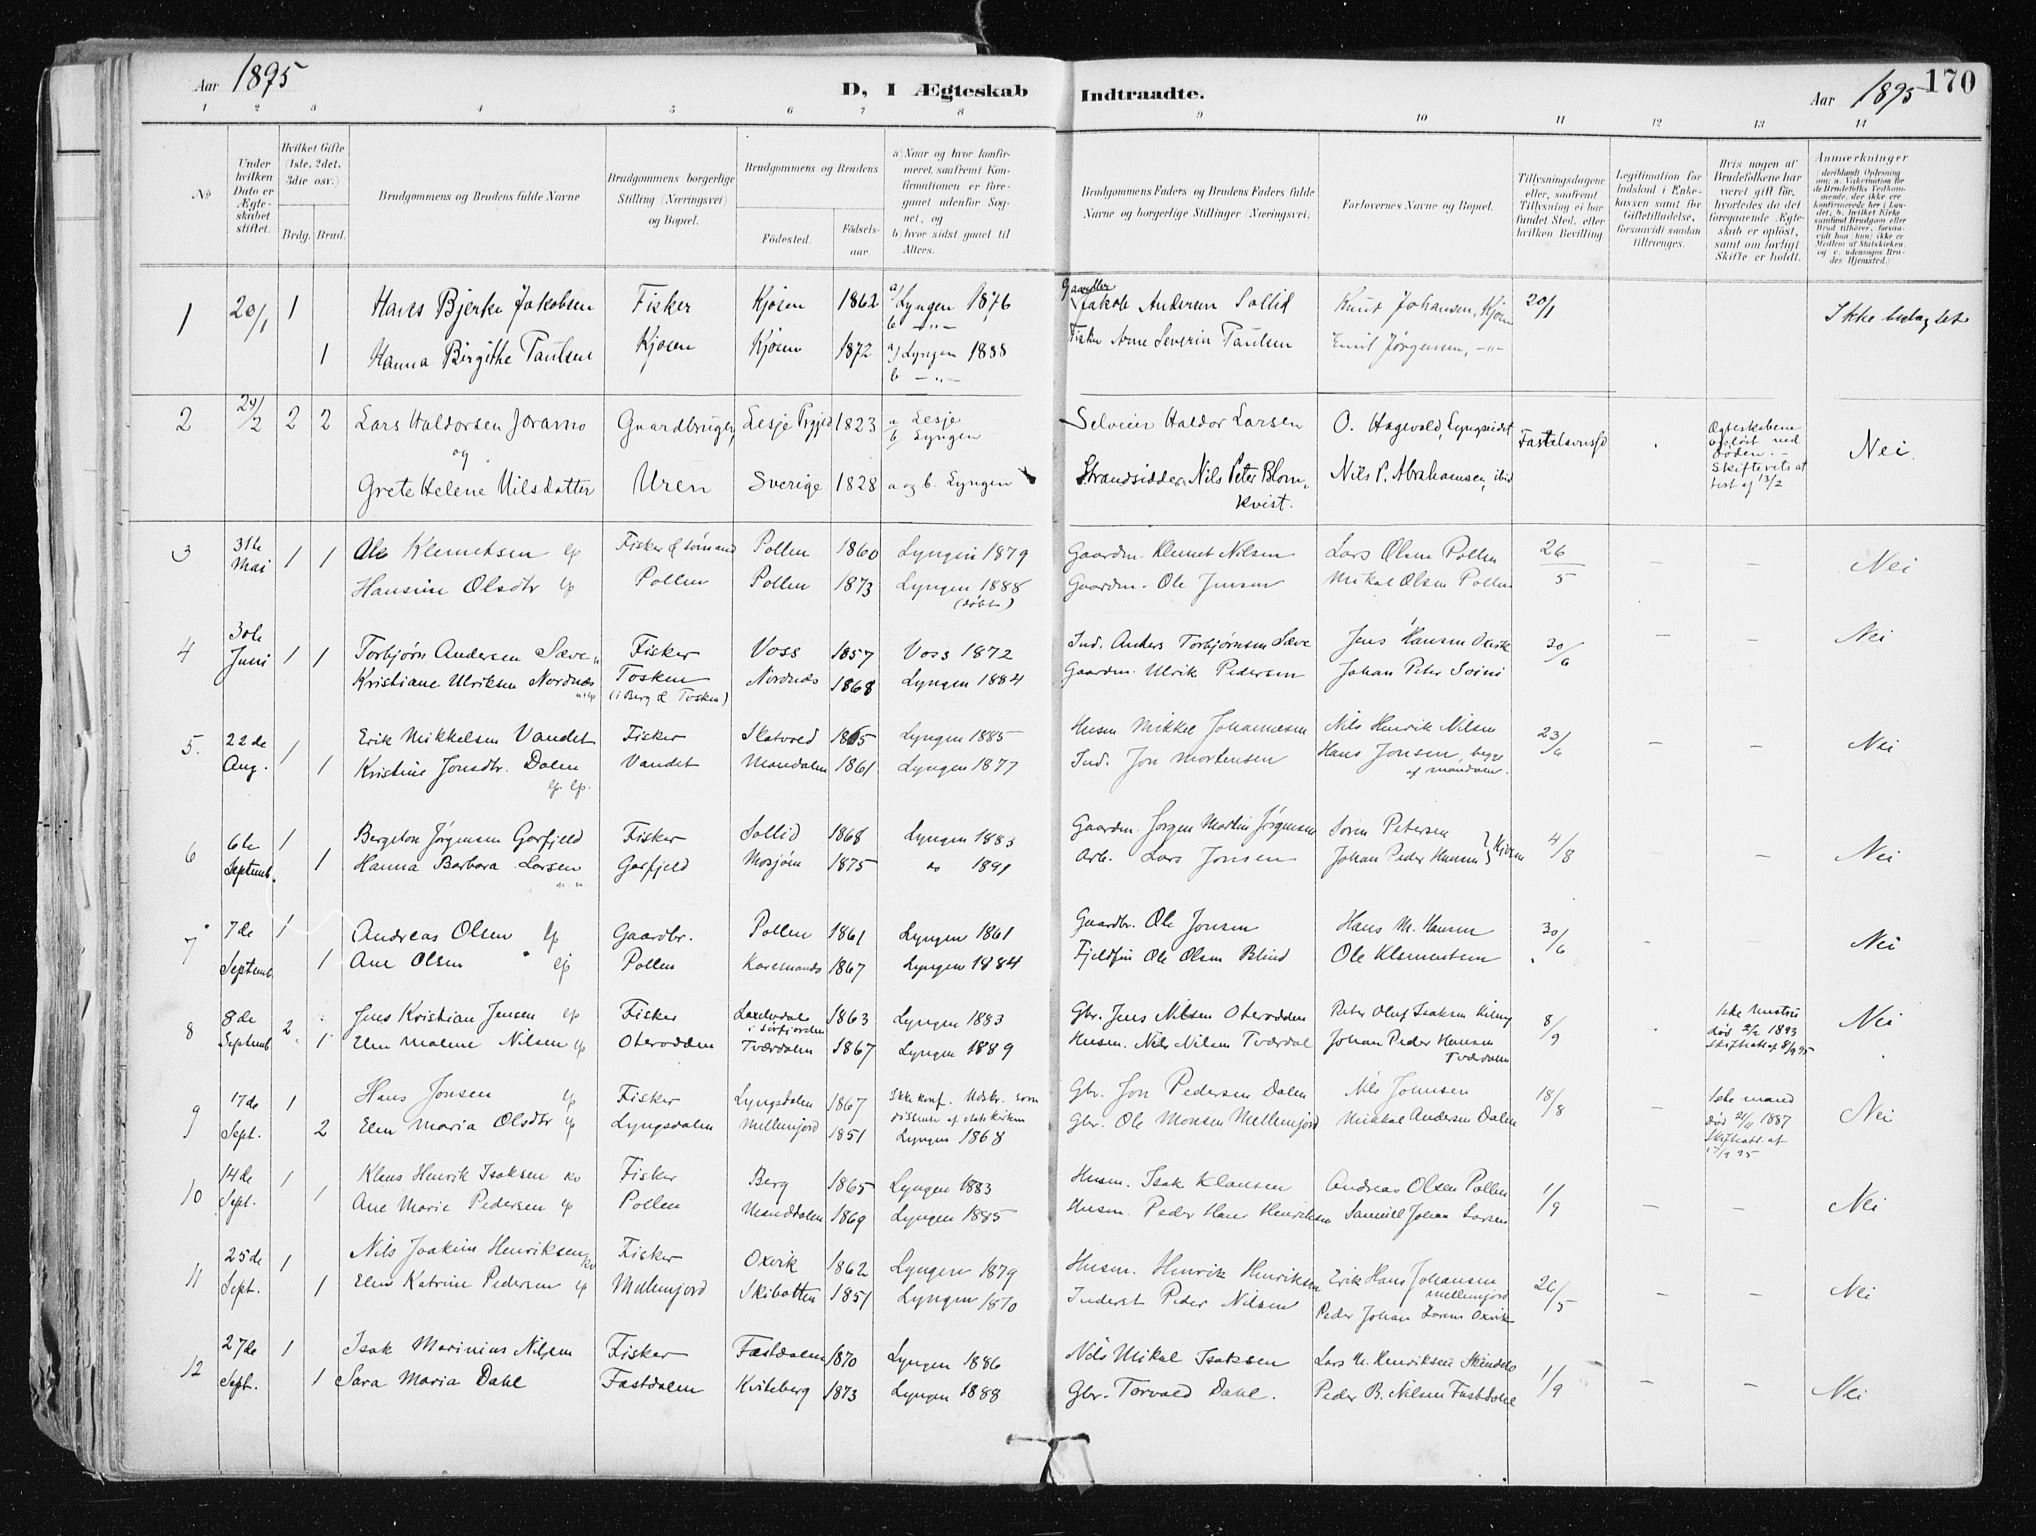 Aar 1895
D, I Ægteskab Indtraadte.
Aar 1895
170
1 2 3 4 5 6 7 8 9 10 11 12 13 14
No
Under hvilken Dato er Ægteskabet stiftet.
Hvilket Gifte (1ste, 2det, 3die osv.)
Brdg. Brud.
Brudgommens og Brudens fulde Navne
Brudgommens borgerlige Stilling (Næringsvei) og Bopæl.
Brudgommens og Brudens
Fødested. Fødselsaar.
a) Naar og hvor konfirmeret, saafremt Konfirmationen er foregaaet udenfor Sognet, og
b) hvor sidst gaaet til Alters.
Brudgommens Faders og Brudens Faders fulde Navne og borgerlige Stillinger (Næringsvei)
Forlovernes Navne og Bopæl.
Tillysningsdagene eller, saafremt Tillysning ei har fundet Sted, efter hvilken Bevilling
Legitimation for Indskud i Enkekassen samt for Giftetilladelse, forsaavidt saadan tiltrænges.
Hvis nogen af Brudefolkene har været gift før, hvorledes da det foregaaende Ægteskab er opløst, samt om lovligt Skifte er holdt.
Anmerkninger
1 20/1 1 Hans Bjerke Jakobsen Fisker Kjosen 1862 a/ Lyngen 1876 Gaardbr Jakob Andersen Sollid Knut Johansen, Kjosen 20/1 Ikke
b — „ —
1 Hanna Birgithe Paulsen Kjosen Kjosen 1872 a/ Lyngen 1888 Fisker Arne Severin Paulsen Emil Jørgensen, —„—
b — „ —
2 24/2 2 2 Lars Haldorsen Joramo Gaardbruger, Lesje Prgjeld 1823 a Lesje b Lyngen Selveier Haldor Larsen O. Hagevold, Lyngseidet Fastelavnssd Ægteskabene opløst ved Døden. – Nei.
og
Grete Helene Nilsdatter Uren Sverige 1828 a og b. Lyngen Strandsidder Nils Peter Blomkvist. Nils P. Abrahamsen, ibid Skifteretsattest af 13/2
3 31te Mai 1 1 Ole Klemetsen lp Fisker & Pollen 1860 Lyngen 1879 Gaardm. Klemet Nilsen Lars Olsen Pollen 26/5 – – Nei
Hansine Olsdtr lp Pollen Pollen 1873 Lyngen 1888 (døbt) Gaardm. Ole Jensen Mikal Olsen Pollen
4 30te Juni 1 1 Torbjørn Andersen Sæve n Fisker Voss 1857 Voss 1872 Ind. Anders Torbjørnsen Sæve Jens Hansen 20/6 – – Nei
Kristiane Ulriksen Nordnæs Tosken Nordnæs 1868 Lyngen 1884 Gaardm. Ulrik Pedersen Johan Peter
(i Berg & Tosken)
5. 22de Aug. 1 Erik Mikkelsen Vandet Fisker Skatvold 1865 Lyngen 1885 Husm Mikkel Johannesen Nils Henrik Nilsen 23/6 – – Nei
1 Kristine Jonsdtr. Dalen Vandet Mandalen 1861 Lyngen 1877 Ind. Jon Mortensen Hans Jonsen, begge af Mandalen.
lp lp.
6 6te Septemb. 1 Bergeton Jørgensen Gasfjeld Fisker Sollid 1868 Lyngen 1883 Gaardm. Jørgen Martin Jørgensen Søren Petersen 4/8 – – Nei
1 Hanna Barbara Larsen Gasfjeld Mosjøen 1875 do 1891 Arb. Lars Jonsen Johan Peder Hansen } Kjosen
n.n.
7 7de Septemb. 1 Andreas Olsen lp Gaardbr. Pollen 1861 Lyngen 1861 Gaardbr. Ole Jonsen Hans M. Hansen 30/6 – – Nei
1 Ane Olsen lp Pollen Karesuando 1867 Lyngen 1884 Fjeldfin Ole Olsen Blind Ole Klementsen
8 8de Septemb 2. Jens Kristian Jensen lp Fisker Laxelvdal i Sørfjorden 1863 Lyngen 1883 Gbr. Jens Nilsen Oterodden Peter Oluf Isaksen 8/9 1ste Hustru død 2/2 1893 Nei
1 Elen Malene Nilsen lp Oterodden Tverdalen 1867 Lyngen 1889 Husm. Nils Nilsen Tverdal Johan Peder Hansen Tverdalen Skifteatt. af 8/9 95
9 17de Sept. 1 Hans Jonsen lp Fisker Lyngsdalen 1867 Ikke konf. Udtr. som dissenter af statskirken Gbr. Jon Pedersen Dalen Nils Johnsen 18/8 – 1ste mand Nei
2 Elen Maria Olsdtr lp Lyngsdalen Mellemjord 1851 Lyngen 1868 Gbr. Ole Monsen Mellemjord Mikkal Andersen Dalen død 21/6 1887 Skifteatt. af 17/9 95
10 14de Sept. 1 Klaus Henrik Isaksen kv Fisker Berg 1865 Lyngen 1883 Husm. Isak Klausen Andreas Olsen Pollen 1/9 – – Nei
1 Ane Marie Pedersen lp Pollen Manddalen 1869 Lyngen 1885 Husm. Peder Hans Henriksen Samuel Johan Larsen
11 25de Sept. 1 Nils Joakim Henriksen kv Fisker Oxvik 1862 Lyngen 1879 Husm. Henrik Henriksen Erik Hans Johansen Mellemjord 26/5 – – Nei
1 Elen Katrine Pedersen lp Mellemjord Skibotten 1851 Lyngen 1870 Inderst Peder Nilsen Peder Johan Larsen Oxvik
12 27de Sept. 1 Isak Marinius Nilsen Fisker Fastdalen 1870 Lyngen 1886 Nils Mikal Isaksen Lars M. Henriksen 1/9 – – Nei
1 Sara Maria Dahl Fastdalen Kviteberg 1873 Lyngen 1888 Gbr. Torvald Dahl. Peder B. Nilsen Fastdalen